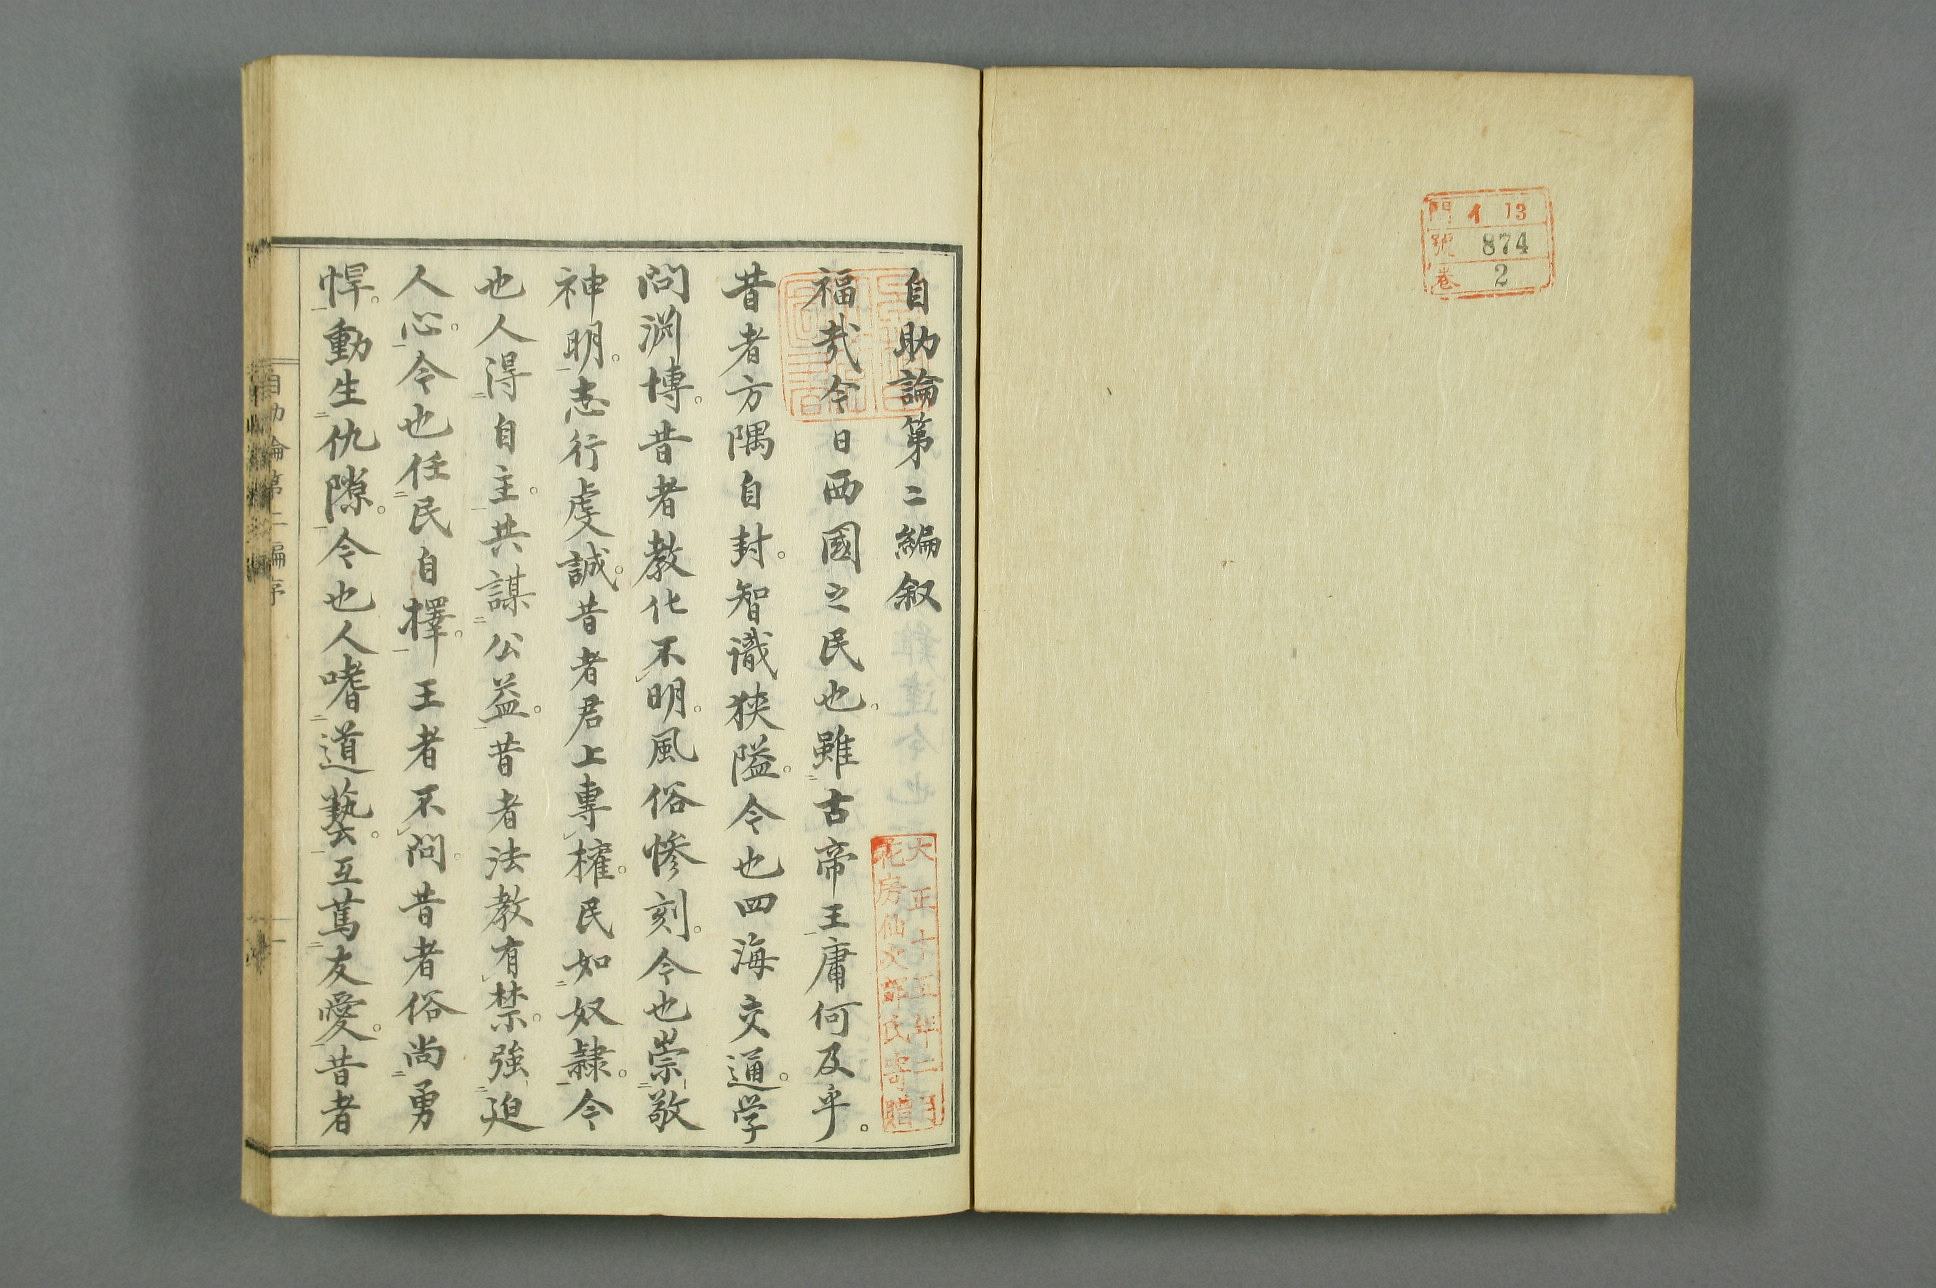 門 イ 13
號 874
卷 2
自助論第二編叙
福哉今日西國之民也。雖古帝王庸何及乎。
昔者方隅自封。智識狹隘。今也四海交通。学
問渊博。昔者教化不明。風俗慘刻。今也崇敬
神明。志行虔誠。昔者君上專權。民如奴隷。今
也人得自主。共謀公益。昔者法教有禁。強迫
人心。今也任民自擇。王者不問。昔者俗尚勇
悍。動生仇隙。今也人嗜道藝。互篤友愛。昔者
大正十五年二月
花房仙次郎氏寄贈
自助論第二編序
一